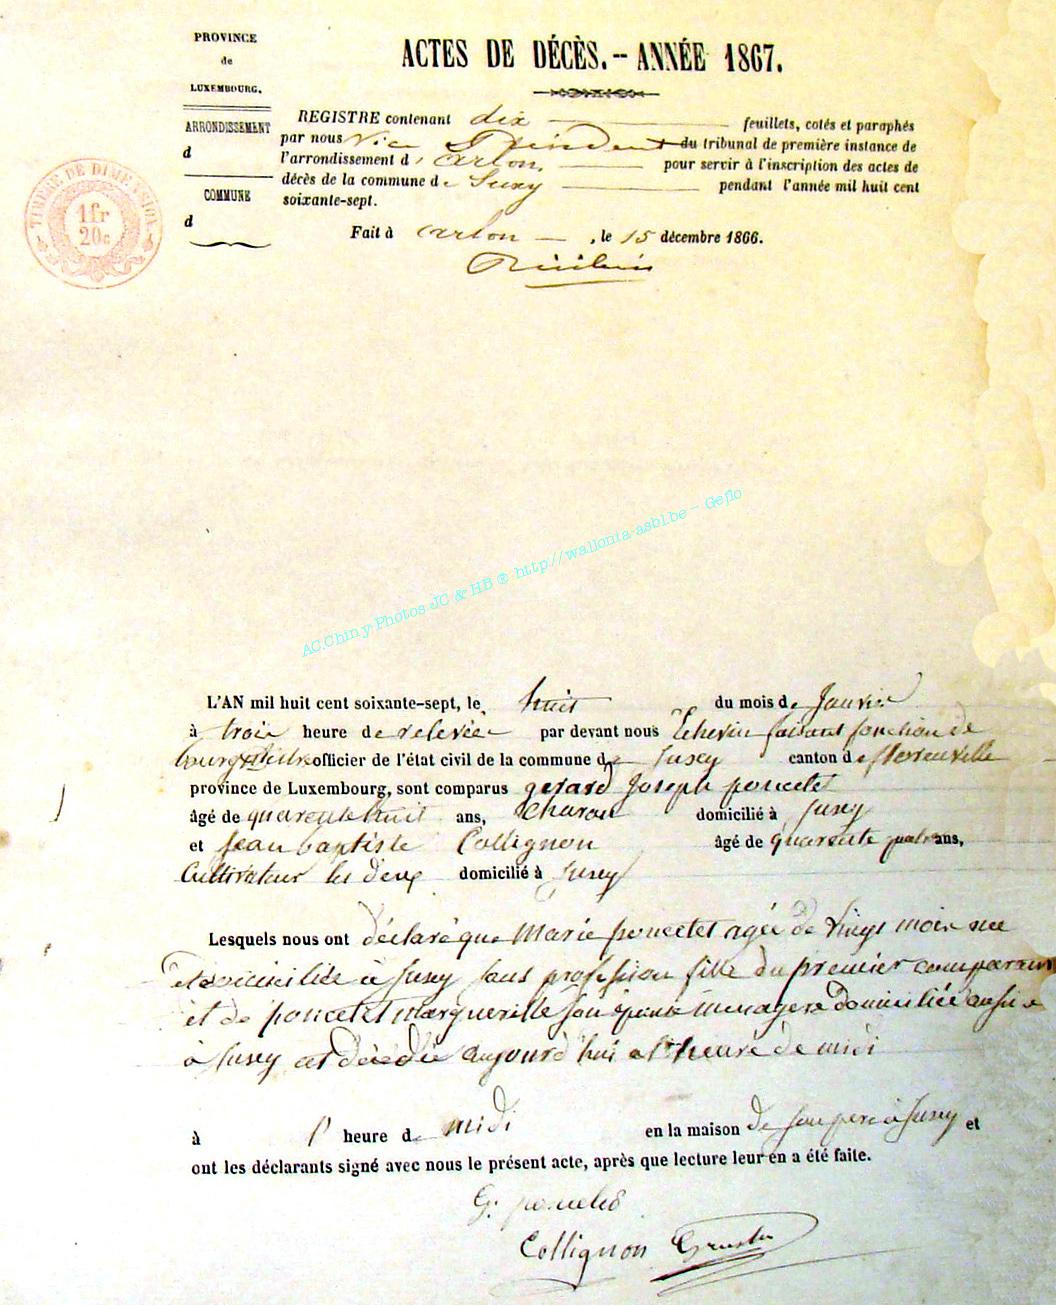 PROVINCE
de
LUXEMBOURG.
ARRONDISSEMENT
d
COMMUNE
d
TIMBRE DE DIMENSION
1fr
20c
ACTES DE DÉCÈS.-- ANNÉE 1867.
REGISTRE contenant dix feuillets, cotés et paraphés
par nous Vice Président du tribunal de première instance de
l'arrondissement d'arlon, pour servir à l'inscription des actes de
décès de la commune de Suxy pendant l'année mil huit cent
soixante-sept.
Fait à arlon, le 15 décembre 1866.
AC.Chiny Photos JC & HB ® http://wallonia-asbl.be - Geflo
L'AN mil huit cent soixante-sept, le huit du mois de Janvier
à trois heure de relevée par devant nous Echevin faisant fonction de
bourgmestre officier de l'état civil de la commune de Suxy canton de florenville
province de Luxembourg, sont comparus gerard Joseph poncelet
âgé de quarente huit ans, charon domicilié à Suxy
et Jean baptiste Collignon âgé de quarente quatre ans,
Cultivateur les deux domicilié à Suxy
Lesquels nous ont déclaré que Marie poncelet agée de vingt mois née
et domiciliée à Suxy sans profession fille du premier comparant
et de poncelet marguerille son épouse menagere domiciliée aussi
à Suxy est décédée aujourd'hui a l'heure de midi
à l' heure de midi en la maison de son pere à Suxy et
ont les déclarants signé avec nous le présent acte, après que lecture leur en a été faite.
G. poncelet
Collignon